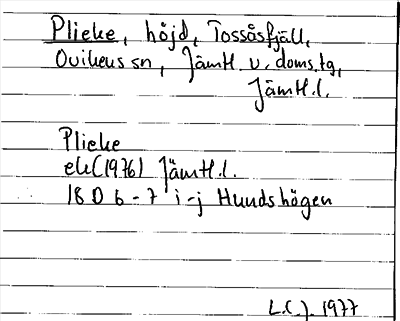 Plieke, höjd, Tossåsfjäll,
Ovikens sn, Jämtl. v. doms.tg,
Jämtl.l.
Plieke
ek (1976) Jämtl.l.
18 D 6-7 i-j Hundshögen
L.C.J. 1977